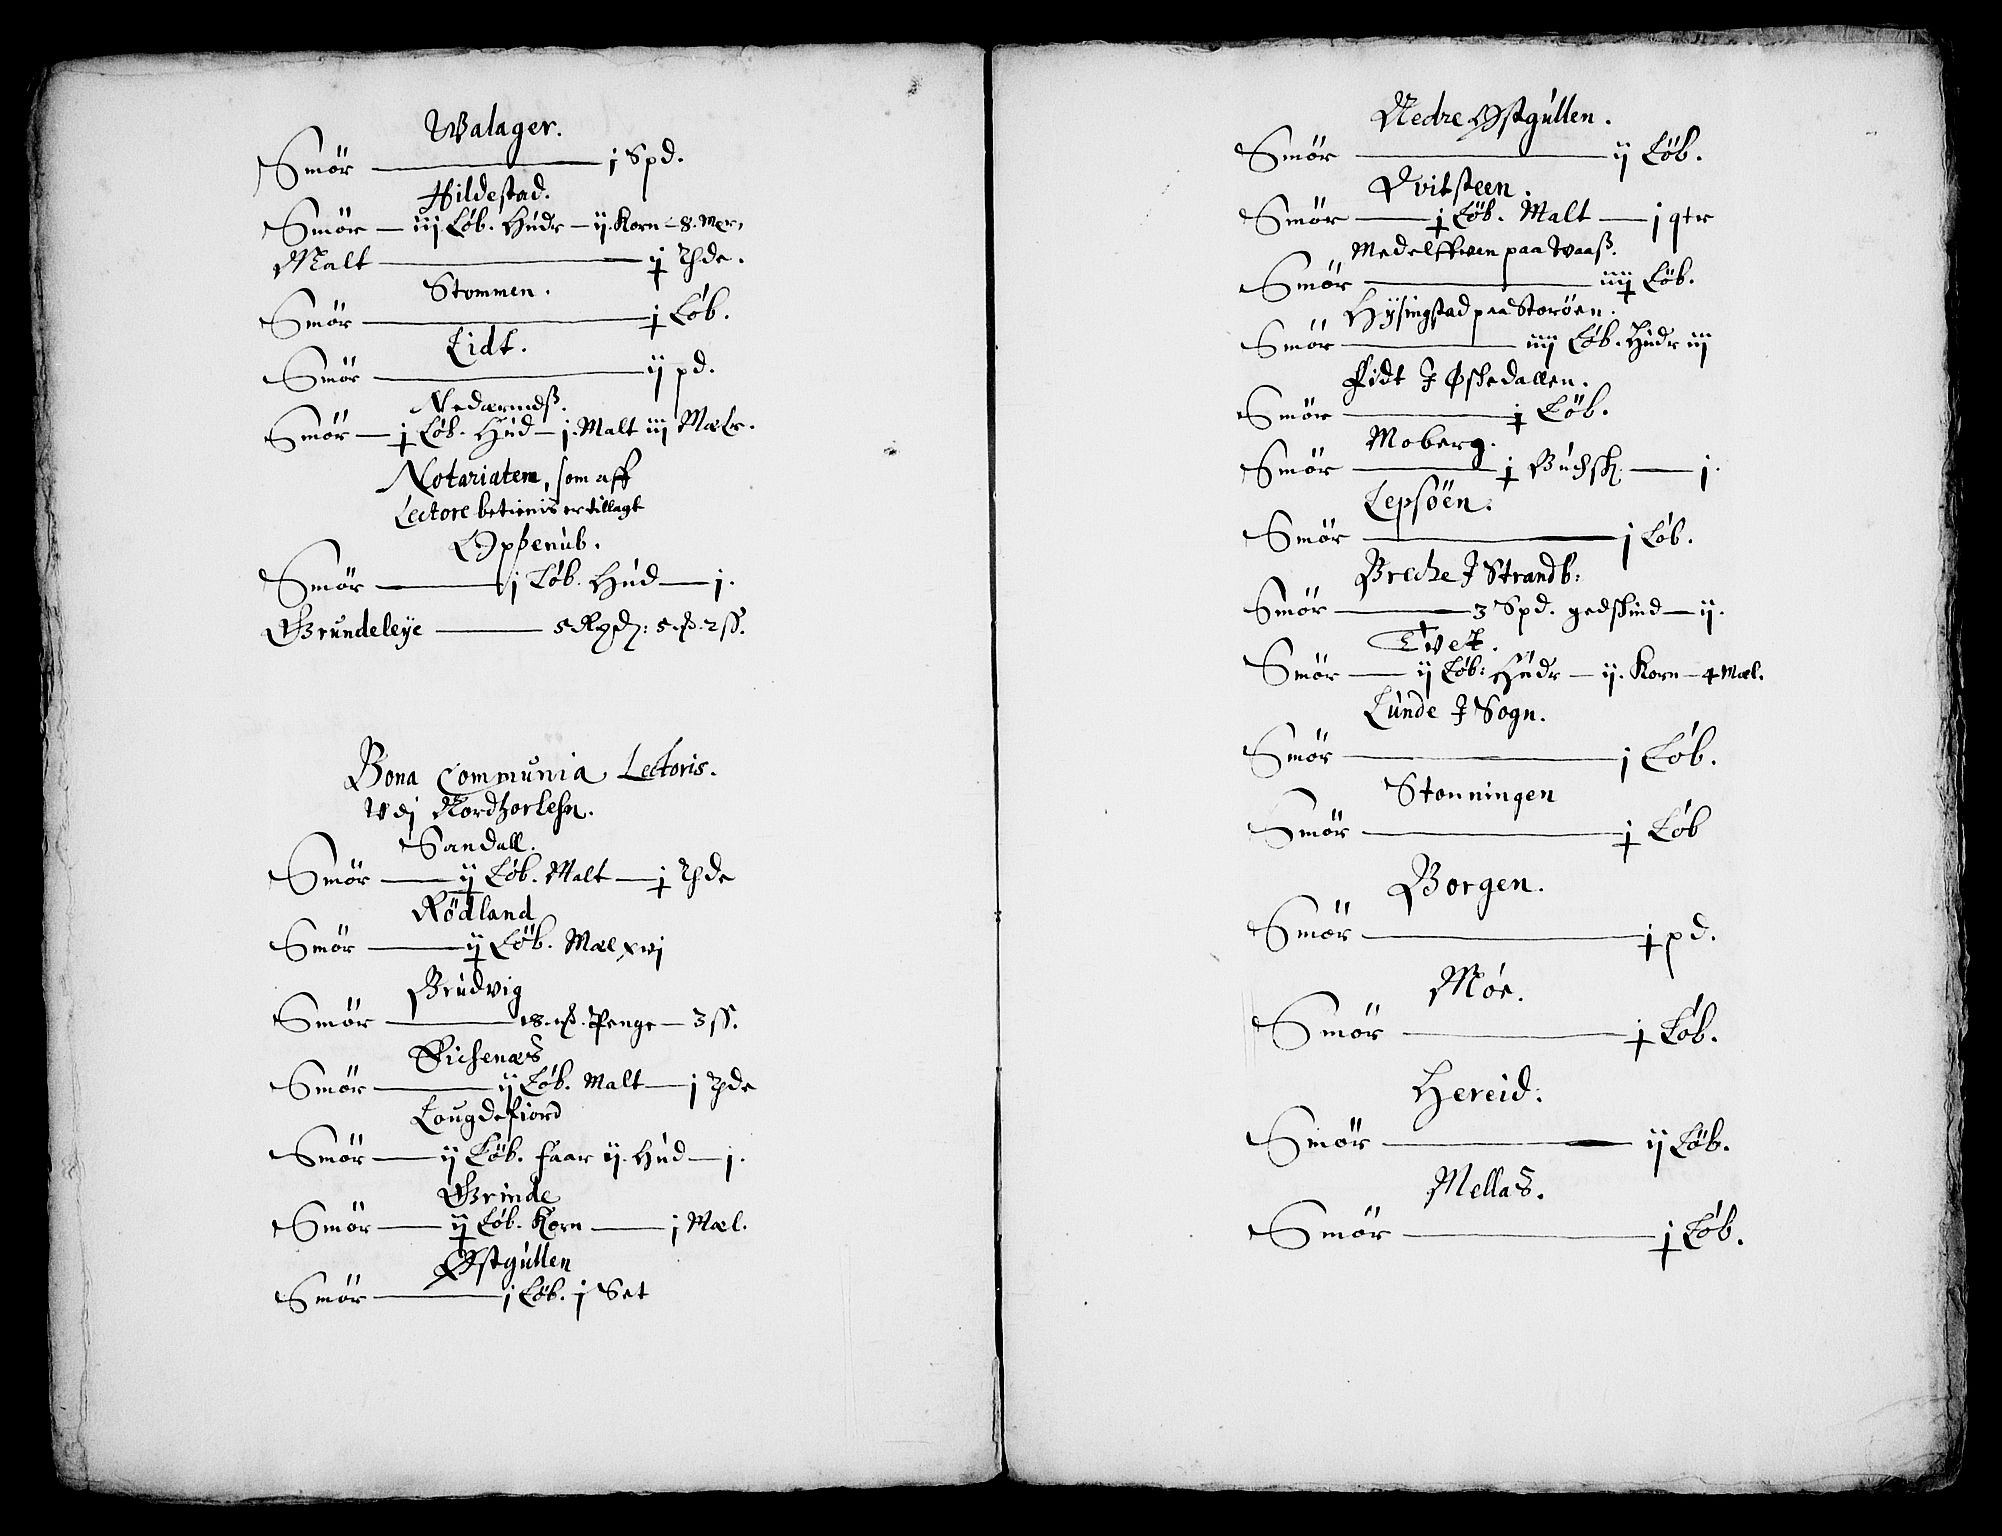 Walager.
Smör — j Spd.
Hildestad.
Smör — iij Löb. Húdr — ij. Korn — 8. Mær,
Malt — j Thde.
Stommen.
Smör — j Löb.
Lidt.
Smör — ij pd.
Nedærindß.
Smör — j Löb. Húd — j. Malt iij Mælr.
Notariatem, som aff
Lectore betienis er tillagt
Smör — j Löb. Húd — j.
Grundeleÿe — 5 Rgd: 5 2 ß.
Bona Communia Lectoris.
Vdj Nordhorlehn.
Sandall.
Smör — ij Löb. Malt — j Thde
Rödland
Smör — ij Löb. Mæl xvj
Brúdvig
Smör — 18. Penge — 3 ß.
Eichenæs
Smör — ij Löb. Malt — j Thde
Lougdefiord
Smör — ij Löb. faar ij. Húd — j.
Grinde
Smör — ij Löb. Korn — j Mæl.
Østgúllen
Smör — j Löb. j Set
Nedre Østgúllen.
Smör — ij Löb.
Qvitsteen.
Smör — j Löb. Malt — j qtr
Medelffwen paa Waaß.
Smör — iiij Löb.
Hÿsingstad paa Storöen.
Smör — iiij Löb. Húdr iij
Fidt J Øskedallen.
Smör — j Löb.
Moberg.
Smör — j Búchsk. — j.
Lepsöen.
Smör — j Löb.
Breche J Strandb:
Smör — 3 Spd. gedskind — ij.
Tvet.
Smör — ij Löb: Húdr — ij. Korn — 4 Mæl.
Lúnde J Sogn.
Smör — j Löb.
Stonningen
Smör — j Löb
Borgen.
Smör — j pd.
Móe.
Smör — j Löb.
Hereid.
Smör — ij Löb.
Mellas.
Smör — j Löb.